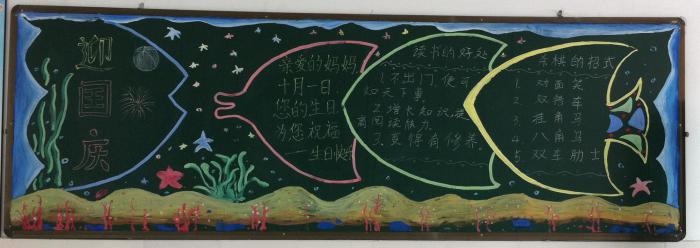 迎
国
庆
亲爱的妈妈，
十月一日，
您的生日，
为您祝福
生日快乐
读书的好处
1.不出门便可
知天下事.
2.增长知识,提
高阅读能力.
3.变得有修养.
象棋的招式
1. 对面笑
2. 双叠车
3. 挂角马
4. 八角马
5. 双车肋士